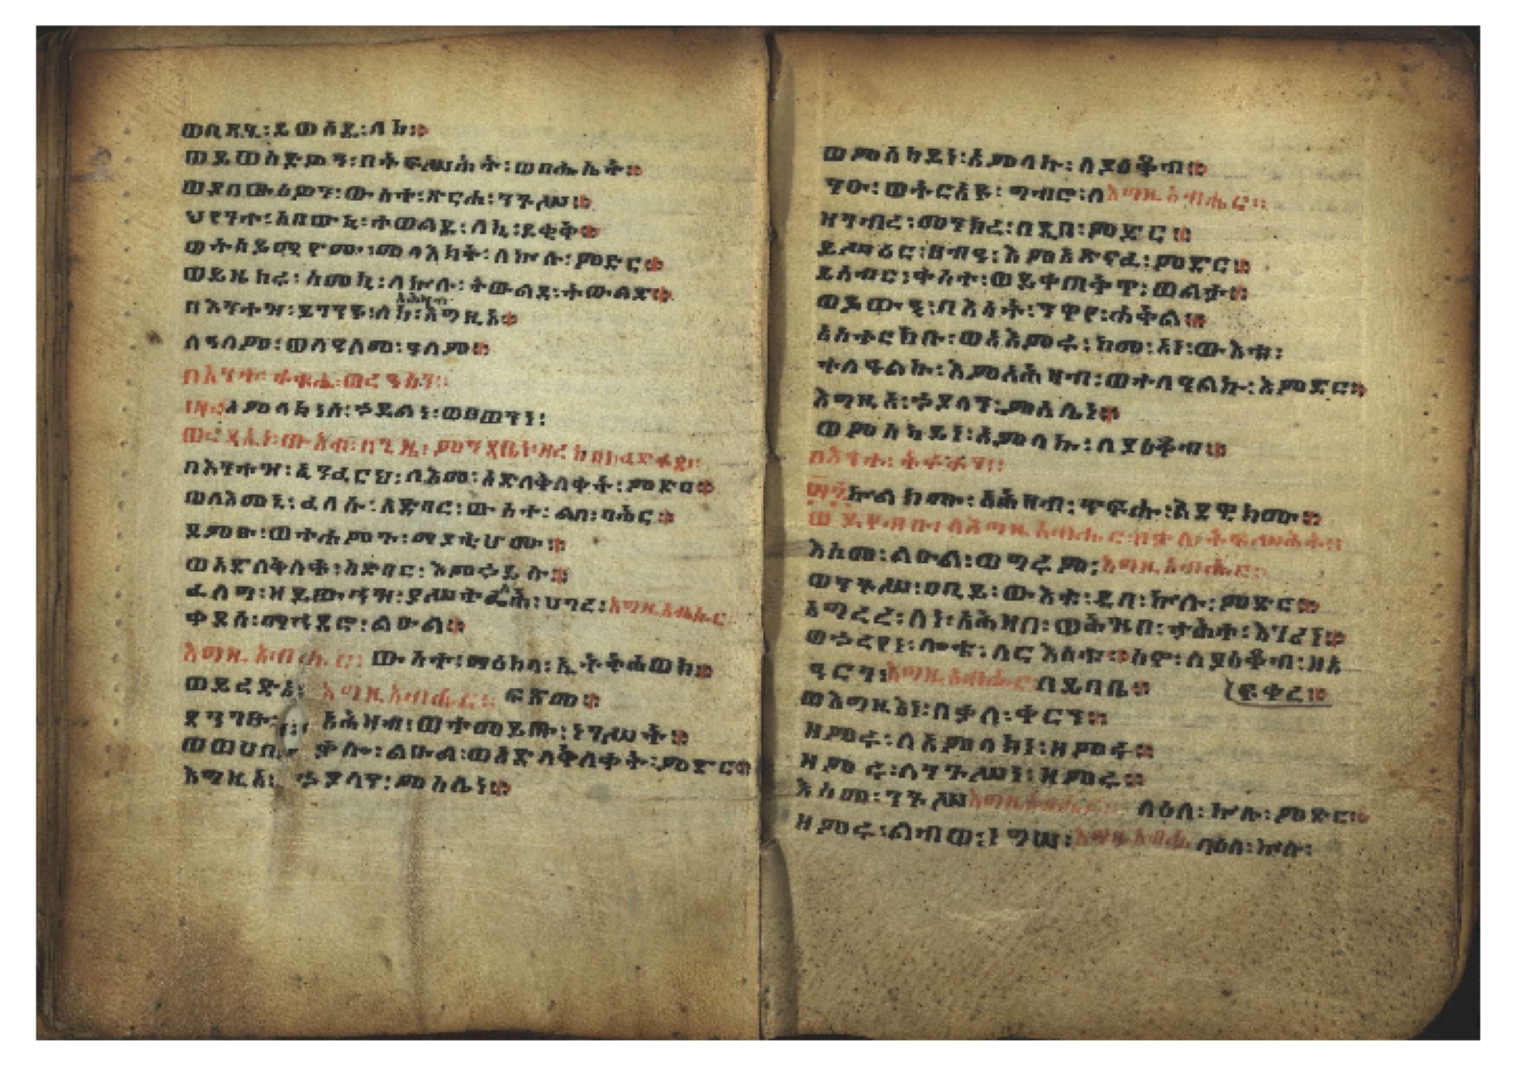 ወቢጽሂ፡ ይወስዱ፡ ለኪ።
ወይወስድዎን፡ በትፍሥሕት፡ ወበሐሤት።
ወያበውእዎን፡ ውስተ፡ ጽርሐ፡ ንጉሥ።
ህየንተ፡ አበውኪ፡ ተወልዱ፡ ለኪ፡ ደቂቅ።
ወትሰይሚዮሙ፡ መላእክት፡ ለኵሉ፡ ምድር።
ወይዜከሩ፡ ስመኪ፡ ለኵሉ፡ ትውልደ፡ ትውልድ።
በእንተዝ፡ ይገንዩ፡ ለከ፡ አሕዛብ፡ እግዚኦ።
ለዓለም፡ ወለዓለመ፡ ዓለም።
አምላክነሰ፡ ኃይልነ፡ ወፀወንነ፡
በእንተዝ፡ ኢንፈርህ፡ ለእመ፡ አድለቅለቀት፡ ምድር።
ወለእመኒ፡ ፈለሱ፡ አድባር፡ ውስተ፡ ልበ፡ ባሕር።
ደምፁ፡ ወተሐምጉ፡ ማያቲሆሙ።
ወአድለቅለቁ፡ አድባር፡ እምኃይሉ።
ፈለግ፡ ዘይውኅዝ፡ ያሥተፌሥሕ፡ ሀገረ፡ እግዚአብሔር
ቀደሰ፡ ማኅደሮ፡ ልዑል።
እግዚአብሔር፡ ውስተ፡ ማዕከላ፡ ኢትትሐወክ።
ወይረድኣ፡ እግዚአብሔር። ፍጽመ።
ደንገፁ፡ አሕዛብ፡ ወተመይጡ፡ ነገሥት።
ወወሀበ፡ ቃሎ፡ ልዑል፡ ወአድለቅለቀት፡ ምድር።
እግዚአ፡ ኃያላን፡ ምስሌነ።
ወምስካይነ፡ አምላኩ፡ ለያዕቆብ።
ንዑ፡ ወትርአዩ፡ ግብሮ፡ ለእግዚአብሔር።
ዘገብረ፡ መንክረ፡ በዲበ፡ ምድር።
ይሥዕር፡ ፀብዓ፡ እምአጽናፈ፡ ምድር።
ይሰብር፡ ቀስተ፡ ወይቀጠቅጥ፡ ወልታ።
ወይውዒ፡ በእሳት፡ ንዋየ፡ ሐቅል።
አስተርክቡ፡ ወአእምሩ፡ ከመ፡ አነ፡ ውእቱ፡
ተለዓልኩ፡ እምአሕዛብ፡ ወተለዓልኩ፡ እምድር።
እግዚአ፡ ኃያላን፡ ምስሌነ።
ወምስካይነ፡ አምላኩ፡ ለያዕቆብ።
ኵልክሙ፡ አሕዛብ፡ ጥፍሑ፡ እደዊክሙ።
ወየብቡ፡ ለእግዚአብሔር፡ በቃለ፡ ትፍሥሕት።
እስመ፡ ልዑል፡ ወግሩም፡ እግዚአብሔር።
ወንጉሥ፡ ዐቢይ፡ ውእቱ፡ ዲበ፡ ኵሉ፡ ምድር።
አግረረ፡ ለነ፡ አሕዛበ፡ ወሕዝበ፡ ታሕተ፡ እገሪነ።
ወኃረየነ፡ ሎቱ፡ ለርእስቱ። ስኖ፡ ለያዕቆብ፡ ዘአ
ዓርገ፡ እግዚአብሔር፡ በይባቤ። ፍቀረ።
ወእግዚእነ፡ በቃለ፡ ቀርን።
ዘምሩ፡ ለአምላክነ፡ ዘምሩ።
ዘምሩ፡ ለንጉሥነ፡ ዘምሩ።
እስመ፡ ንጉሥ እግዚአብሔር፡ ላዕለ፡ ኵሉ፡ ምድር።
ዘምሩ፡ ልብወ፡ ነግሠ፡ እግዚአብሔር ላዕለ፡ ኵሉ፡